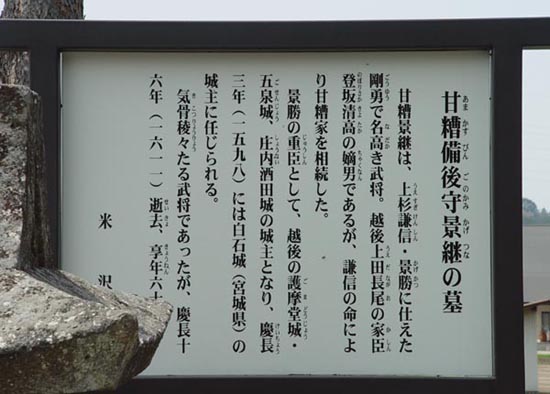 甘糟備後守景継の墓
甘糟景継は、上杉謙信・景勝に仕えた
剛勇で名高き武将。越後上田長尾の家臣
登坂清高の嫡男であるが、謙信の命によ
り甘糟家を相続した。
景勝の重臣として、越後の護摩堂城・
五泉城、庄内酒田城の城主となり、慶長
三年(一五九八)には白石城(宮城県)の
城主に任じられる。
気骨稜々たる武将であったが、慶長十
六年(一六一一)逝去、享年六十
米沢